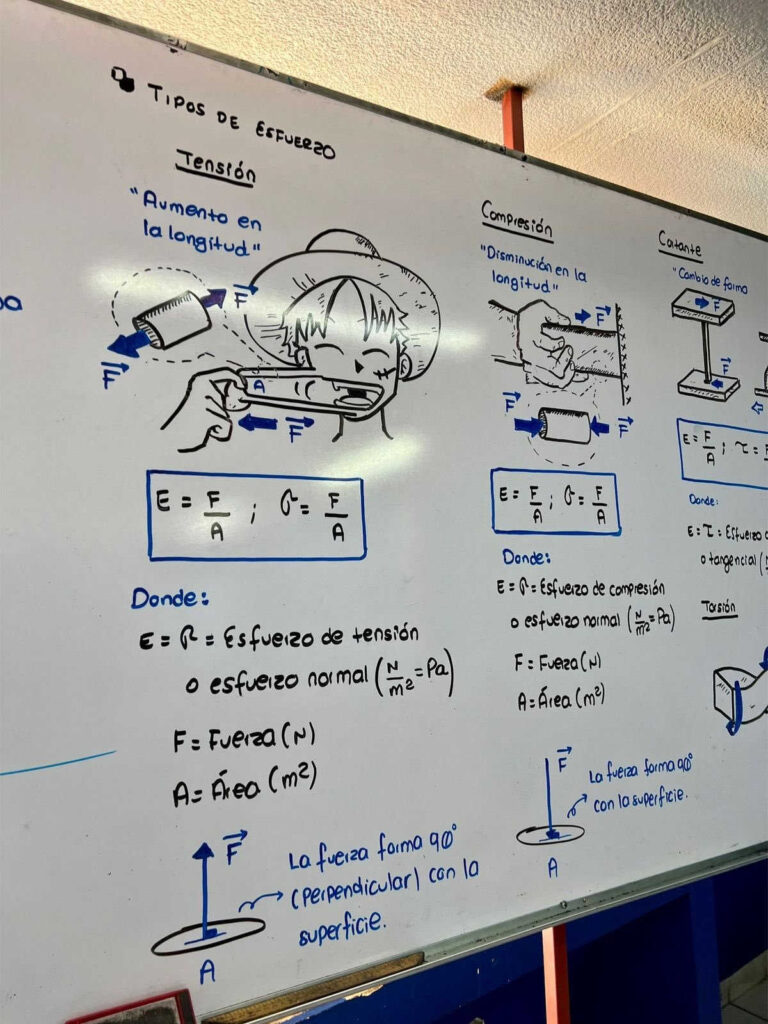 TIPOS DE ESFUERZO
Tensión
"Aumento en
la longitud"
F
F
A
F
E = F/A ; σ = F/A
Donde:
E = σ = Esfuerzo de tensión
o esfuerzo normal (N/m² = Pa)
F = Fuerza (N)
A = Área (m²)
F
La fuerza forma 90°
(perpendicular) con la
superficie.
A
Compresión
"Disminución en la
longitud"
F
F
F
E = F/A ; σ = F/A
Donde:
E = σ = Esfuerzo de compresión
o esfuerzo normal (N/m² = Pa)
F = Fuerza (N)
A = Área (m²)
F
La fuerza forma 90°
con la superficie.
A
Cortante
"Cambio de forma
F
F
E = F/A ; τ = F
Donde:
E = τ = Esfuerzo
o tangencial (
Torsión